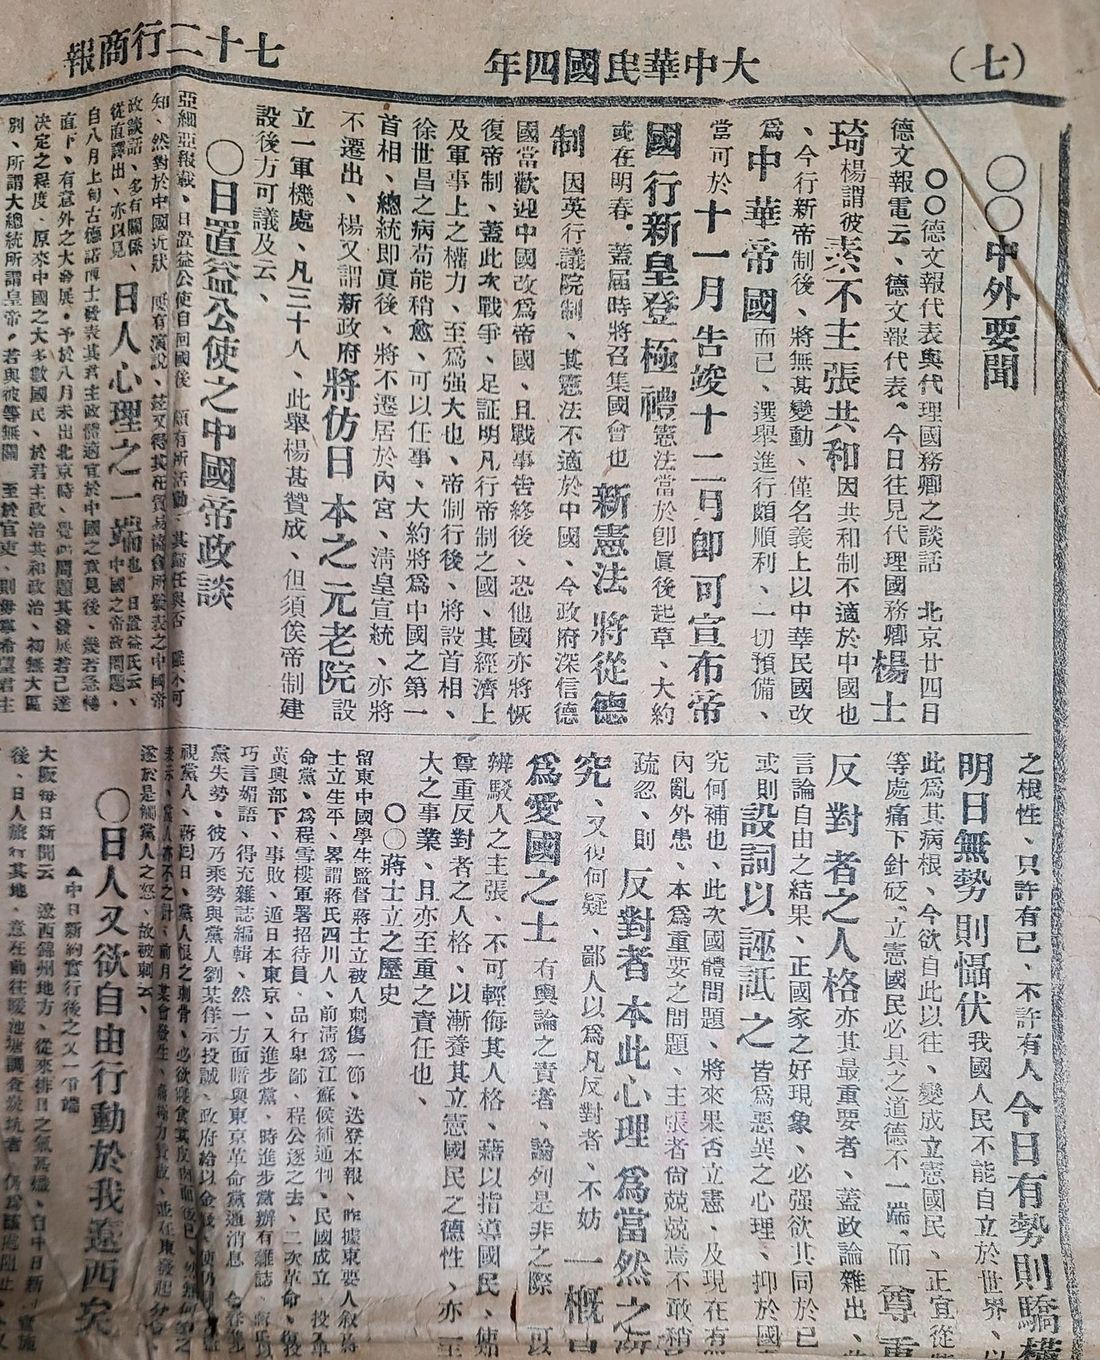 （七）
大中華民國四年
七十二行商報
〇〇中外要聞
〇〇德文報代表與代理國務卿之談話　北京廿四日
德文報電云、德文報代表、今日往見代理國務卿楊士
琦楊謂彼素不主張共和因共和制不適於中國也
、今行新帝制後、將無甚變動、僅名義上以中華民國改
爲中華帝國而已、選舉進行頗順利、一切預備、
當可於十一月告竣十二月卽可宣布帝
國行新皇登極禮憲法當於卽眞後起草、大約
或在明春、蓋屆時將召集國會也　新憲法將從德
制因英行議院制、其憲法不適於中國、今政府深信德
國當歡迎中國改爲帝國、且戰事告終後、恐他國亦將恢
復帝制、蓋此次戰爭、足証明凡行帝制之國、其經濟上
及軍事上之權力、至爲强大也、帝制行後、將設首相、
徐世昌之病苟能稍愈、可以任事、大約將爲中國之第一
首相、總統卽眞後、將不遷居於內宮、淸皇宣統、亦將
不遷出、楊又謂新政府將仿日本之元老院設
立一軍機處、凡三十人、此舉楊甚贊成、但須俟帝制建
設後方可議及云、
〇日置益公使之中國帝政談
亞細亞報載、日置益公使自回國後　頗有所活動、其論任與否　雖不可
知、然對於中國近狀　屢有演說、茲又得其在貿易協會所發表之中國帝
政談話、多有關係、日人心理之一端也、日置益氏云、
從直譯出、亦以見　中國之帝政問題、
自八月上旬古德諾博士發表其君主政體適宜於中國之意見後、幾若急轉
直下、有意外之大發展、予於八月末出北京時、覺此問題其發展若已達
決定之程度、原來中國之大多數國民、於君主政治共和政治、初無大區
別、所謂大總統所謂皇帝、若與彼等無關　至於官吏、則毎事希望君主
之根性、只許有己、不許有人今日有勢則驕橫
明日無勢則懾伏我國人民不能自立於世界、以
此爲其病根、今欲自此以往、變成立憲國民、正宜從
等處痛下針砭、立憲國民必具之道德不一端、而尊重
反對者之人格亦其最重要者、蓋政論雜出、
言論自由之結果、正國家之好現象、必强欲其同於已
或則設詞以誣詆之皆爲惡異之心理、抑於國
究何補也、此次國體問題、將來果否立憲、及現在有
內亂外患、本爲重要之問題、主張者尙兢兢焉不敢稍
疏忽、則反對者本此心理爲當然之
究、又復何疑、鄙人以爲凡反對者、不妨一概
爲愛國之士有輿論之責者、論列是非之際　可以
辨駁人之主張、不可輕侮其人格、藉以指導國民、使
尊重反對者之人格、以漸養其立憲國民之德性、亦至
大之事業、且亦至重之責任也、
〇〇蔣士立之歷史
留東中國學生監督蔣士立被人刺傷一節、迭登本報、昨據東要人敘蔣
士立生平、畧謂蔣氏四川人、前淸爲江蘇候補通判、民國成立、投入革
命黨、爲程雪樓軍署招待員、品行卑鄙、程公逐之去、二次革命、復投
黃興部下、事敗、遁日本東京、入進步黨、時進步黨辦有雜誌、蔣氏以
巧言媚語、得充雜誌編輯、然一方面暗與東京革命黨通消息　今春進步
黨失勢、彼乃乘勢與黨人劉某佯示投誠、政府給以金錢、使
視黨人、蔣到日、黨人恨之刺骨、必欲寢食其皮
遂於是觸黨人之怒、故被刺云、
〇日人又欲自由行動於我遼西矣
▲中日新約實行後之又一事端
大阪每日新聞云　遼西錦州地方、從來排日之氣甚熾、自中日新
後、日人旅行其地、意在前往暖池塘調查炭坑者